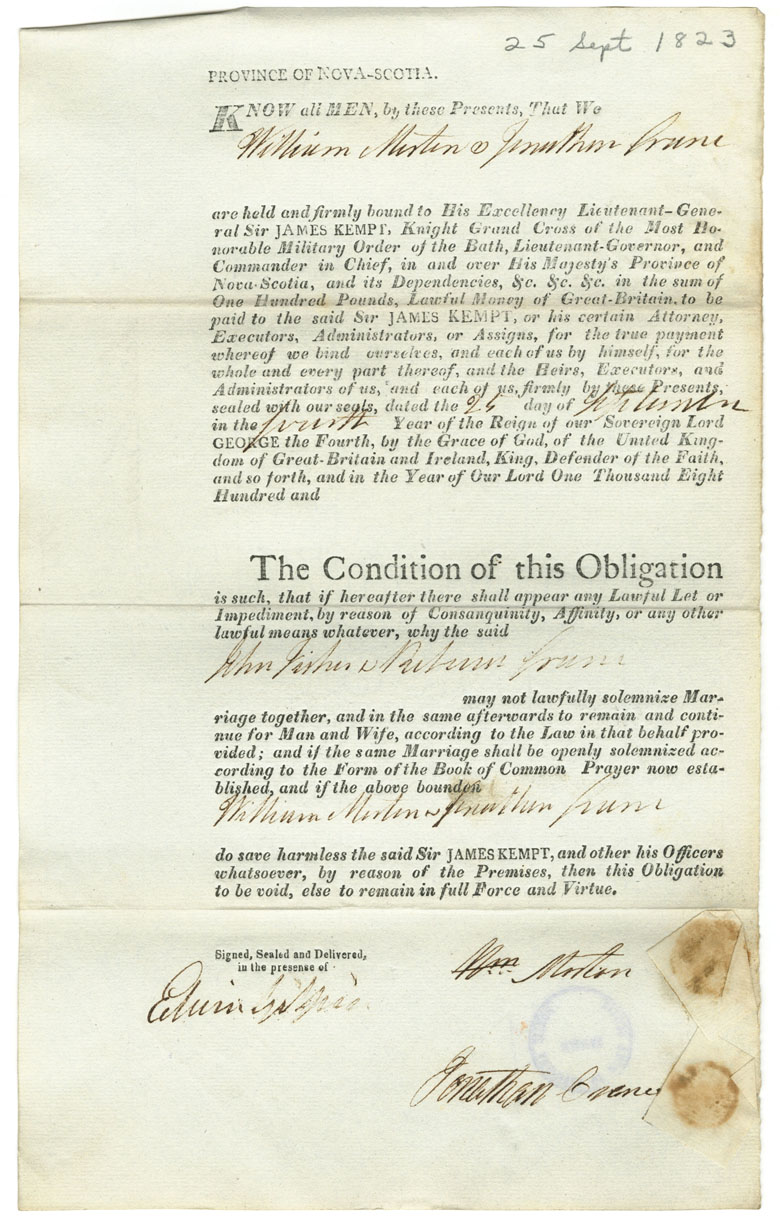 25 Sept 1823
PROVINCE OF NOVA-SCOTIA.
KNOW all MEN, by these Presents, That We
William Morton & Jonathan Crane
are held and firmly bound to His Excellency Lieutenant-Gene-
ral Sir JAMES KEMPT, Knight Grand Cross of the Most Ho-
norable Military Order of the Bath, Lieutenant-Governor, and
Commander in Chief, in and over His Majesty's Province of
Nova-Scotia, and its Dependencies, &c. &c. &c. in the sum of
One Hundred Pounds, Lawful Money of Great-Britain. to be
paid to the said Sir JAMES KEMPT, or his certain Attorney,
Executors, Administrators, or Assigns, for the true payment
whereof we bind ourselves, and each of us by himself, for the
whole and every part thereof, and the Heirs, Executors, and
Administrators of us, and each of us, firmly by these Presents,
sealed with our seals, dated the 25 day of September
in the fourth Year of the Reign of our Sovereign Lord
GEORGE the Fourth, by the Grace of God, of the United King-
dom of Great-Britain and Ireland, King, Defender of the Faith,
and so forth, and in the Year of Our Lord One Thousand Eight
Hundred and
The Condition of this Obligation
is such, that if hereafter there shall appear any Lawful Let or
Impediment, by reason of Consanquinity, Affinity, or any other
lawful means whatever, why the said
John Fisher & Rebecca Crane
may not lawfully solemnize Mar-
riage together, and in the same afterwards to remain and conti-
nue for Man and Wife, according to the Law in that behalf pro-
vided; and if the same Marriage shall be openly solemnized ac-
cording to the Form of the Book of Common Prayer now esta-
blished, and if the above bounden
William Morton & Jonathan Crane
do save harmless the said Sir JAMES KEMPT, and other his Officers
whatsoever, by reason of the Premises, then this Obligation
to be void, else to remain in full Force and Virtue.
Signed, Sealed and Delivered,
in the presence of
Wm Morton
Edwin
Jonathan Crane